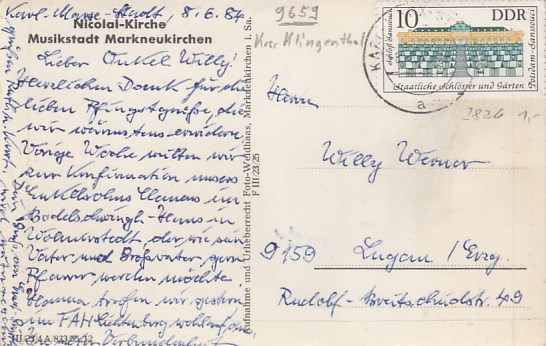 Karl-Marx-Stadt, 8.6.84
Nicolai-Kirche
Musikstadt Markneukirchen
Lieber Onkel Willy!
Herzlichen Dank für die
lieben Pfingstgrüße, die
wir wärmstens erwidern
Vorige Woche weilten wir
zur Konfirmation unseres
Enkelsohns Clemens im
Bodelschwingh-Haus in
Wolmirstedt, der, wie sein
Vater und Großvater, gern
Pfarrer werden möchte
Hanna trafen wir gestern
im FAH Lichtenburg wohlauf
In Verbundenheit
III/23/4 A/
Aufnahme und Urheberrecht Foto-Weidhaas, Markneukirchen i. Sa.
F III/23/25
9659
Krs Klingenthal
10 DDR
Schloß Sanssouci
Potsdam-Sanssouci
Staatliche Schlösser und Gärten
KA
a
3826 1,-
Herrn
Willy Werner
9159 Lugau/Erzg.
Rudolf-Breitscheidstr. 49